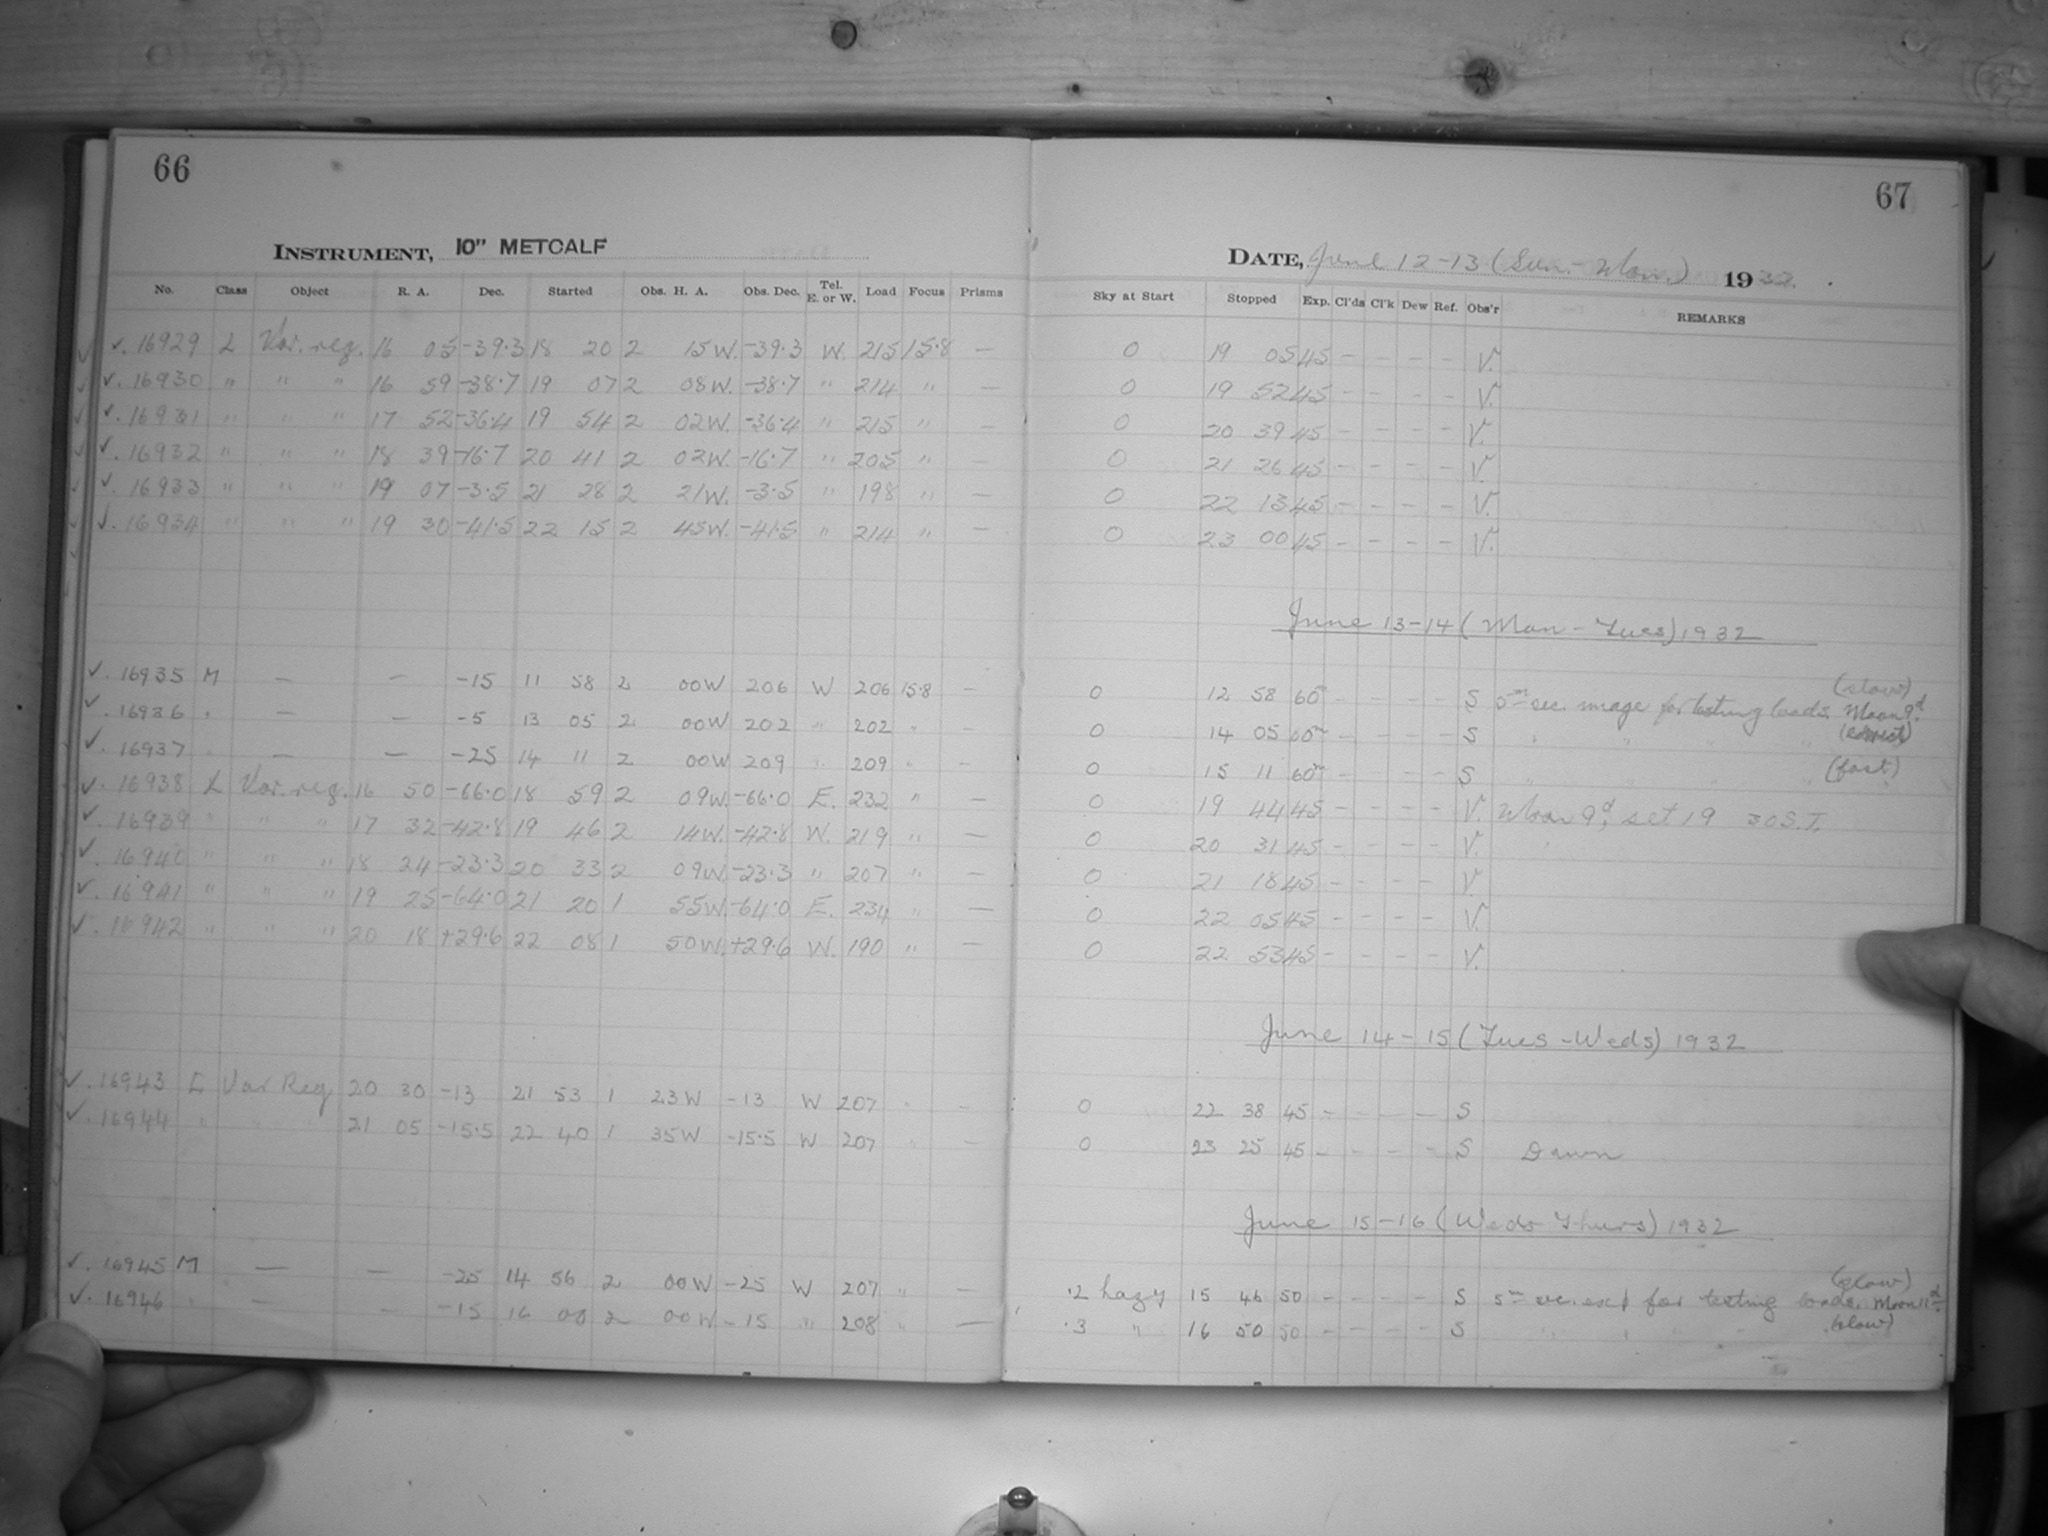 66
67
INSTRUMENT, 10" METCALF
DATE, June 12-13 (Sun.-Mon.) 1932.
No. Class Object R. A. Dec. Started Obs. H. A. Obs. Dec. Tel. E. or W. Load Focus Prisms Sky at Start Stopped Exp. Cl'ds Cl'k Dew Ref. Obs'r REMARKS
✓. 16929 L Var. reg. 16 05 -39.3 18 20 2 15 W. -39.3 W. 215 15.8 — 0 19 05 45 - - - - V.
✓. 16930 " " " 16 59 -38.7 19 07 2 08 W. -38.7 " 214 " — 0 19 52 45 - - - - V.
✓. 16931 " " " 17 52 -36.4 19 54 2 02 W. -36.4 " 215 " — 0 20 39 45 - - - - V.
✓. 16932 " " " 18 39 -16.7 20 41 2 02 W. -16.7 " 205 " — 0 21 26 45 - - - - V.
✓. 16933 " " " 19 07 -3.5 21 28 2 21 W. -3.5 " 198 " — 0 22 13 45 - - - - V.
✓. 16934 " " " 19 30 -41.5 22 15 2 45 W. -41.5 " 214 " — 0 23 00 45 - - - - V.
June 13-14 (Mon - Tues) 1932
✓. 16935 M — — -15 11 58 2 00 W 206 W 206 15.8 — 0 12 58 60m - - - - S 5m sec. image for testing loads. Moon 9d. (slow)
✓. 16936 " — — -5 13 05 2 00 W 202 " 202 " — 0 14 05 60m - - - - S " " " " (correct)
✓. 16937 " — — -25 14 11 2 00 W 209 " 209 " — 0 15 11 60m - - - - S " " " " (fast)
✓. 16938 L Var. reg. 16 50 -66.0 18 59 2 09 W. -66.0 E. 232 " — 0 19 44 45 - - - - V. Moon 9d, set 19 30 S.T.
✓. 16939 " " " 17 32 -42.8 19 46 2 14 W. -42.8 W. 219 " — 0 20 31 45 - - - - V.
✓. 16940 " " " 18 24 -23.3 20 33 2 09 W. -23.3 " 207 " — 0 21 18 45 - - - - V.
✓. 16941 " " " 19 25 -64.0 21 20 1 55 W. -64.0 E. 234 " — 0 22 05 45 - - - - V.
✓. 16942 " " " 20 18 +29.6 22 08 1 50 W. +29.6 W. 190 " — 0 22 53 45 - - - - V.
June 14-15 (Tues - Weds) 1932
✓. 16943 L Var Reg 20 30 -13 21 53 1 23 W -13 W 207 " — 0 22 38 45 - - - - S
✓. 16944 " " " 21 05 -15.5 22 40 1 35 W -15.5 W 207 " — 0 23 25 45 - - - - S Dawn
June 15-16 (Weds Thurs) 1932
✓. 16945 M — — -25 14 56 2 00 W -25 W 207 " — .2 hazy 15 46 50 - - - - S 5m sec. exp for testing loads. Moon 11d. (slow)
✓. 16946 " — — -15 16 00 2 00 W -15 " 208 " — .3 " 16 50 50 - - - - S " " " " (slow)